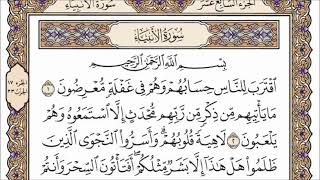 الجزء السابع عشر
سورة الأنبياء
سُورَةُ الأَنْبِيَاءِ
بِسْمِ اللَّهِ الرَّحْمَٰنِ الرَّحِيمِ
اقْتَرَبَ لِلنَّاسِ حِسَابُهُمْ وَهُمْ فِي غَفْلَةٍ مُعْرِضُونَ ١
مَا يَأْتِيهِمْ مِنْ ذِكْرٍ مِنْ رَبِّهِمْ مُحْدَثٍ إِلَّا اسْتَمَعُوهُ وَهُمْ
يَلْعَبُونَ ٢ لَاهِيَةً قُلُوبُهُمْ وَأَسَرُّوا النَّجْوَى الَّذِينَ
ظَلَمُوا هَلْ هَٰذَا إِلَّا بَشَرٌ مِثْلُكُمْ أَفَتَأْتُونَ السِّحْرَ وَأَنْتُمْ
الجزء ١٧
الحزب ٣٣